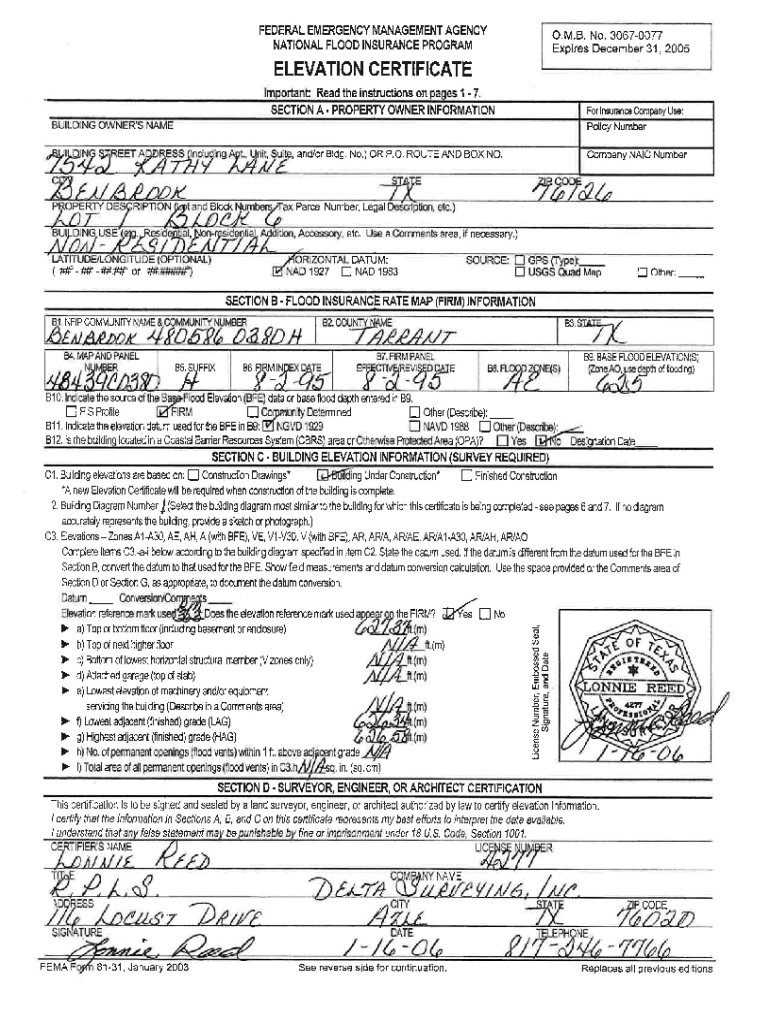 FEDERAL EMERGENCY MANAGEMENT AGENCY
NATIONAL FLOOD INSURANCE PROGRAM
O.M.B. No. 3067-0077
Expires December 31, 2005
ELEVATION CERTIFICATE
Important: Read the instructions on pages 1 - 7.
SECTION A - PROPERTY OWNER INFORMATION
For Insurance Company Use:
BUILDING OWNER'S NAME
Policy Number
BUILDING STREET ADDRESS (Including Apt., Unit, Suite, and/or Bldg. No.) OR P.O. ROUTE AND BOX NO.
Company NAIC Number
7542 KATHY LANE
CITY STATE ZIP CODE
BENBROOK TX 76126
PROPERTY DESCRIPTION (Lot and Block Numbers, Tax Parcel Number, Legal Description, etc.)
LOT BLOCK 6
BUILDING USE (e.g., Residential, Non-residential, Addition, Accessory, etc. Use a Comments area, if necessary.)
NON-RESIDENTIAL
LATITUDE/LONGITUDE (OPTIONAL) HORIZONTAL DATUM: SOURCE: GPS (Type):
( ##° - ##' - ##.##" or ##.#####°) NAD 1927 NAD 1983 USGS Quad Map Other:
SECTION B - FLOOD INSURANCE RATE MAP (FIRM) INFORMATION
B1. NFIP COMMUNITY NAME & COMMUNITY NUMBER B2. COUNTY NAME B3. STATE
BENBROOK 480586 0380H TARRANT TX
B4. MAP AND PANEL NUMBER B5. SUFFIX B6 FIRM INDEX DATE B7. FIRM PANEL EFFECTIVE/REVISED DATE B8. FLOOD ZONE(S) B9. BASE FLOOD ELEVATION(S) (Zone AO, use depth of flooding)
48439C0380 H 8-2-95 8-2-95 AE 625
B10. Indicate the source of the Base Flood Elevation (BFE) data or base flood depth entered in B9.
FIS Profile FIRM Community Determined Other (Describe):
B11. Indicate the elevation datum used for the BFE in B9: NGVD 1929 NAVD 1988 Other (Describe):
B12. Is the building located in a Coastal Barrier Resources System (CBRS) area or Otherwise Protected Area (OPA)? Yes No Designation Date
SECTION C - BUILDING ELEVATION INFORMATION (SURVEY REQUIRED)
C1. Building elevations are based on: Construction Drawings* Building Under Construction* Finished Construction
*A new Elevation Certificate will be required when construction of the building is complete.
2. Building Diagram Number 1 (Select the building diagram most similar to the building for which this certificate is being completed - see pages 6 and 7. If no diagram
accurately represents the building, provide a sketch or photograph.)
C3. Elevations – Zones A1-A30, AE, AH, A (with BFE), VE, V1-V30, V (with BFE), AR, AR/A, AR/AE, AR/A1-A30, AR/AH, AR/AO
Complete Items C3.-a-i below according to the building diagram specified in Item C2. State the datum used. If the datum is different from the datum used for the BFE in
Section B, convert the datum to that used for the BFE. Show field measurements and datum conversion calculation. Use the space provided or the Comments area of
Section D or Section G, as appropriate, to document the datum conversion.
Datum Conversion/Comments
Elevation reference mark used Does the elevation reference mark used appear on the FIRM? Yes No
a) Top of bottom floor (including basement or enclosure) ft.(m)
b) Top of next higher floor N/A ft.(m)
c) Bottom of lowest horizontal structural member (V zones only) N/A ft.(m)
d) Attached garage (top of slab) N/A ft.(m)
e) Lowest elevation of machinery and/or equipment
servicing the building (Describe in a Comments area) N/A ft.(m)
f) Lowest adjacent (finished) grade (LAG) 626.34 ft.(m)
g) Highest adjacent (finished) grade (HAG) 626.58 ft.(m)
h) No. of permanent openings (flood vents) within 1 ft. above adjacent grade N/A
i) Total area of all permanent openings (flood vents) in C3.h N/A sq. in. (sq. cm)
License Number, Embossed Seal,
Signature, and Date
STATE OF TEXAS
REGISTERED
LONNIE REED
4277
PROFESSIONAL
1-16-06
SECTION D - SURVEYOR, ENGINEER, OR ARCHITECT CERTIFICATION
This certification is to be signed and sealed by a land surveyor, engineer, or architect authorized by law to certify elevation information.
I certify that the information in Sections A, B, and C on this certificate represents my best efforts to interpret the data available.
I understand that any false statement may be punishable by fine or imprisonment under 18 U.S. Code, Section 1001.
CERTIFIER'S NAME LICENSE NUMBER
LONNIE REED 4277
TITLE COMPANY NAME
R.P.L.S. DELTA SURVEYING, INC.
ADDRESS CITY STATE ZIP CODE
116 LOCUST DRIVE AZLE TX 76020
SIGNATURE DATE TELEPHONE
Lonnie Reed 1-16-06 817-246-7766
FEMA Form 81-31, January 2003 See reverse side for continuation. Replaces all previous editions